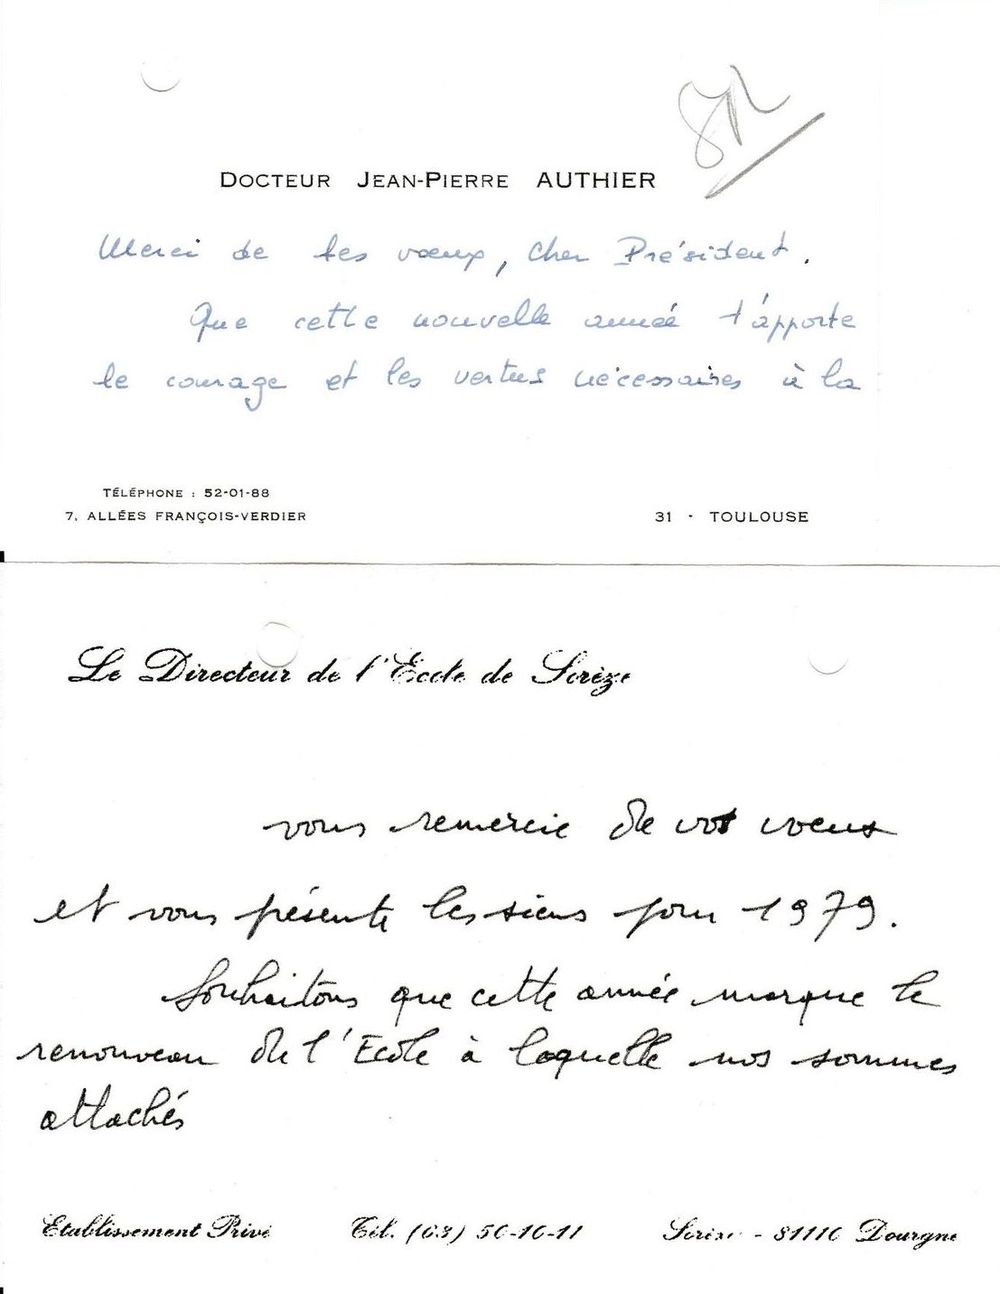 DOCTEUR JEAN-PIERRE AUTHIER
Merci de tes vœux, cher Président.
Que cette nouvelle année t'apporte
le courage et les vertus nécessaires à la
TÉLÉPHONE : 52-01-88
7, ALLÉES FRANÇOIS-VERDIER
31 - TOULOUSE
Le Directeur de l'École de Sorèze
vous remercie de vos voeux
et vous présente les siens pour 1979.
Souhaitons que cette année marque le
renouveau de l'Ecole à laquelle nos sommes
attachés
Etablissement Privé Tél. (63) 50-10-11 Sorèze - 81110 Dourgne